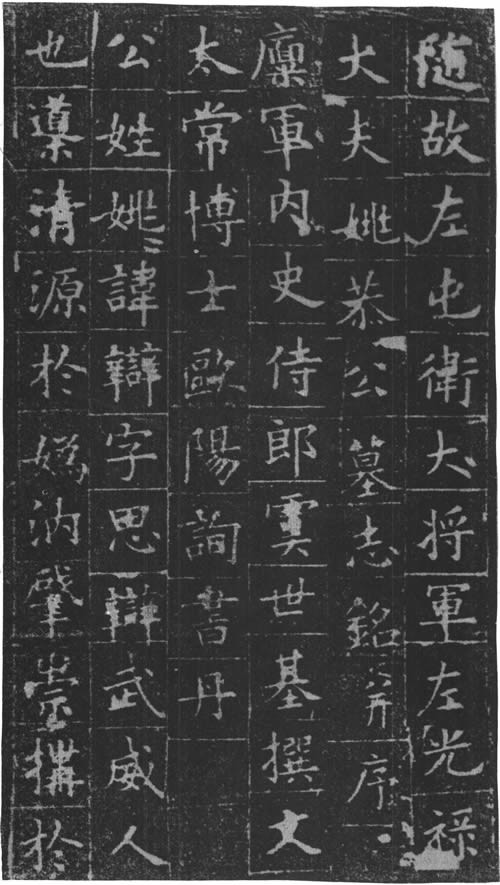 隨故左屯衛大将軍左光祿
大夫姚恭公墓志銘并序
廩軍内史侍郎虞世基撰文
太常博士歐陽詢書丹
公姓姚諱辯字思辯武威人
也導清源於媯汭肇崇構於